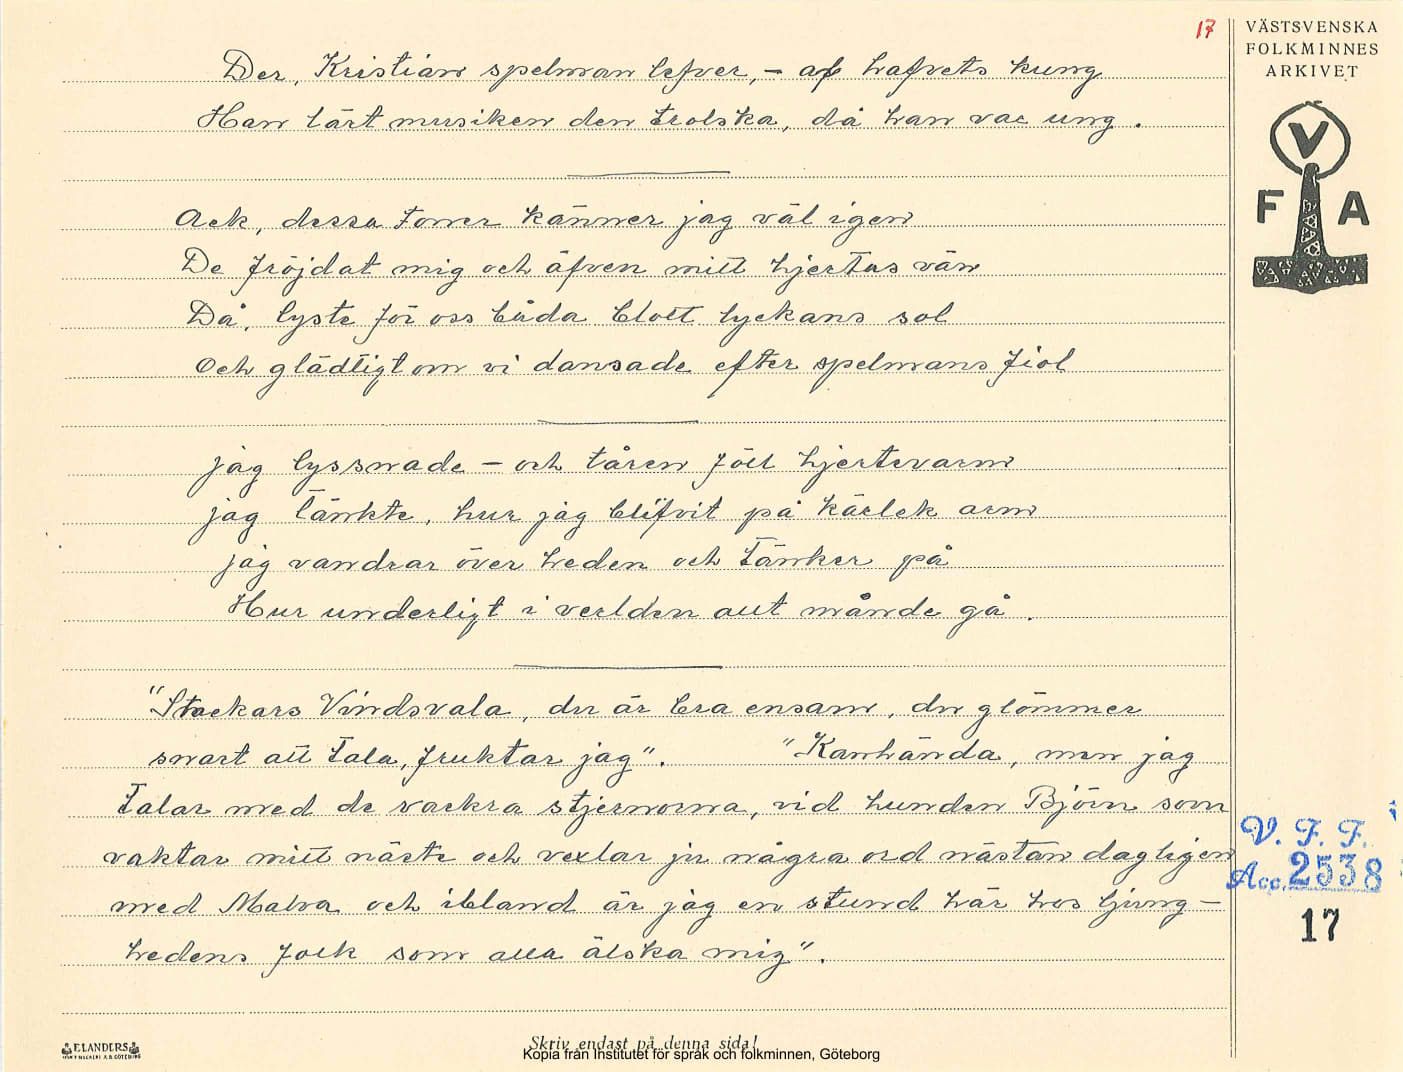 17
VÄSTSVENSKA
FOLKMINNES
ARKIVET
V
F A
Der, Kristian spelman lefver, – af hafvets kung
Han lärt musiken den trolska, då han var ung.
Ack, dessa toner känner jag väl igen
De fröjdat mig och äfven mitt hjertas vän
Då, lyste för oss båda blott lyckans sol
Och glädtigt om vi dansade efter spelmans fiol
jag lyssnade – och tåren föll hjertevarm
jag tänkte, hur jag blifvit på kärlek arm
jag vandrar över heden och tänker på
Hur underligt i verlden allt månde gå.
"Stackars Vindsvala, du är bra ensam, du glömmer
snart att tala, fruktar jag". "Kanhända, men jag
talar med de vackra stjernorna, vid hunden Björn som
vaktar mitt näste och vexlar ju några ord nästan dagligen
med Malva och ibland är jag en stund här hos Ljung–
hedens folk som alla älska mig".
V. F. F.
Acc. 2538
17
F. LANDERS
Skriv endast på denna sida!
Kopia från Institutet för språk och folkminnen, Göteborg